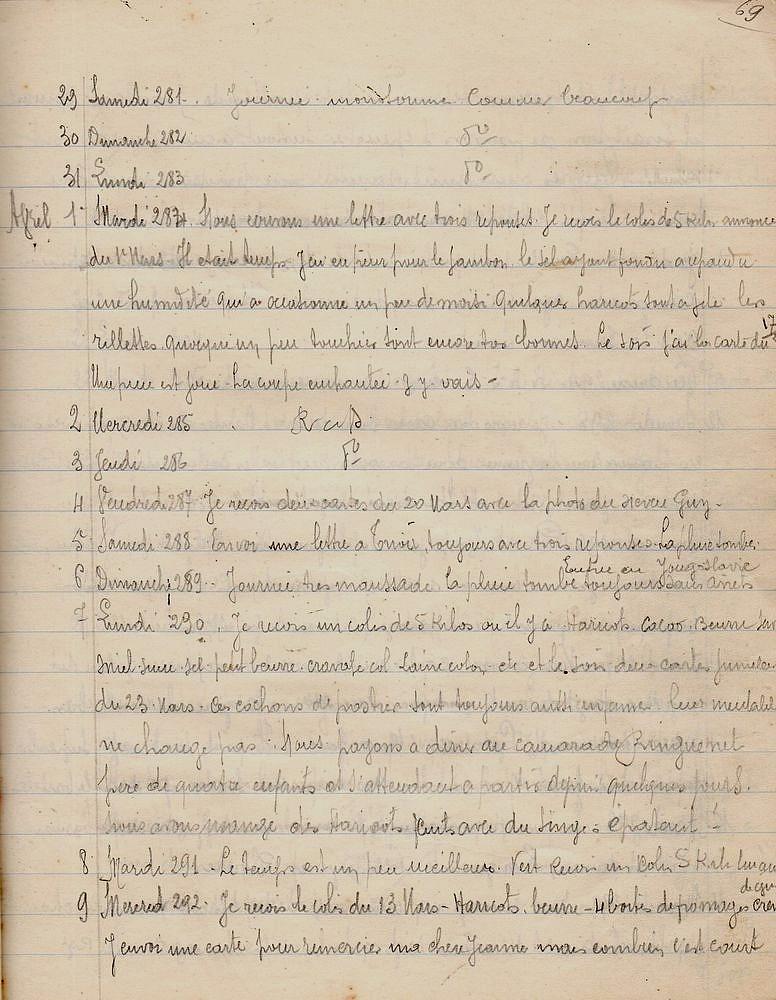 69
29 Samedi 281. Journée monotonne comme beaucoup
30 Dimanche 282 do
31 Lundi 283 do
Avril 1 Mardi 284. Nous ecrivons une lettre avec trois reponses. Je recois le colis de 5 Kilos annonce
du 1er Mars. Il etait temps J'ai eu peur pour le jambon le sel ayant fondu a repandu
une humidité qui a occasionne un peu de moisi quelques haricots sont a jete les
rillettes quoique un peu sont encore tres bonnes. Le soir j'ai la carte du 17
Une piece est joue. La coupe enchantée. J'y vais -
2 Mercredi 285 . R a S.
3 Jeudi 286 do
4 Vendredi 287 Je recois deux cartes du 20 Mars avec la photo du neveu Guy.
5 Samedi 288 Envoi une lettre a toujours avec trois reponses. La pluie tombe.
Entree en Yougoslavie
6 Dimanche 289. Journée tres maussade la pluie tombe toujours sans arrets
7 Lundi 290. Je recois un colis de 5 Kilos ou il y a Haricots cacao. Beurre
miel sucre sel petit beurre. cravate col laine colon etc et le soir deux cartes
du 23 Mars. Ces cochons de sont toujours aussi infame leur mentalité
ne change pas. Nous payons a diner au camarade Ringuenet
pere de quatre enfants et s'attendant a partir depuis quelques jours.
nous avons mange des Haricots cuits avec du singe : épatant -
8 Mardi 291. Le temps est un peu meilleur. Vert recoit un colis 5 Kil
9 Mercred 292. Je recois le colis du 13 Mars - Haricots, beurre - 4 boites de fromages de
J'envoi une carte pour remercier ma chere Jeanne mais combien c'est court